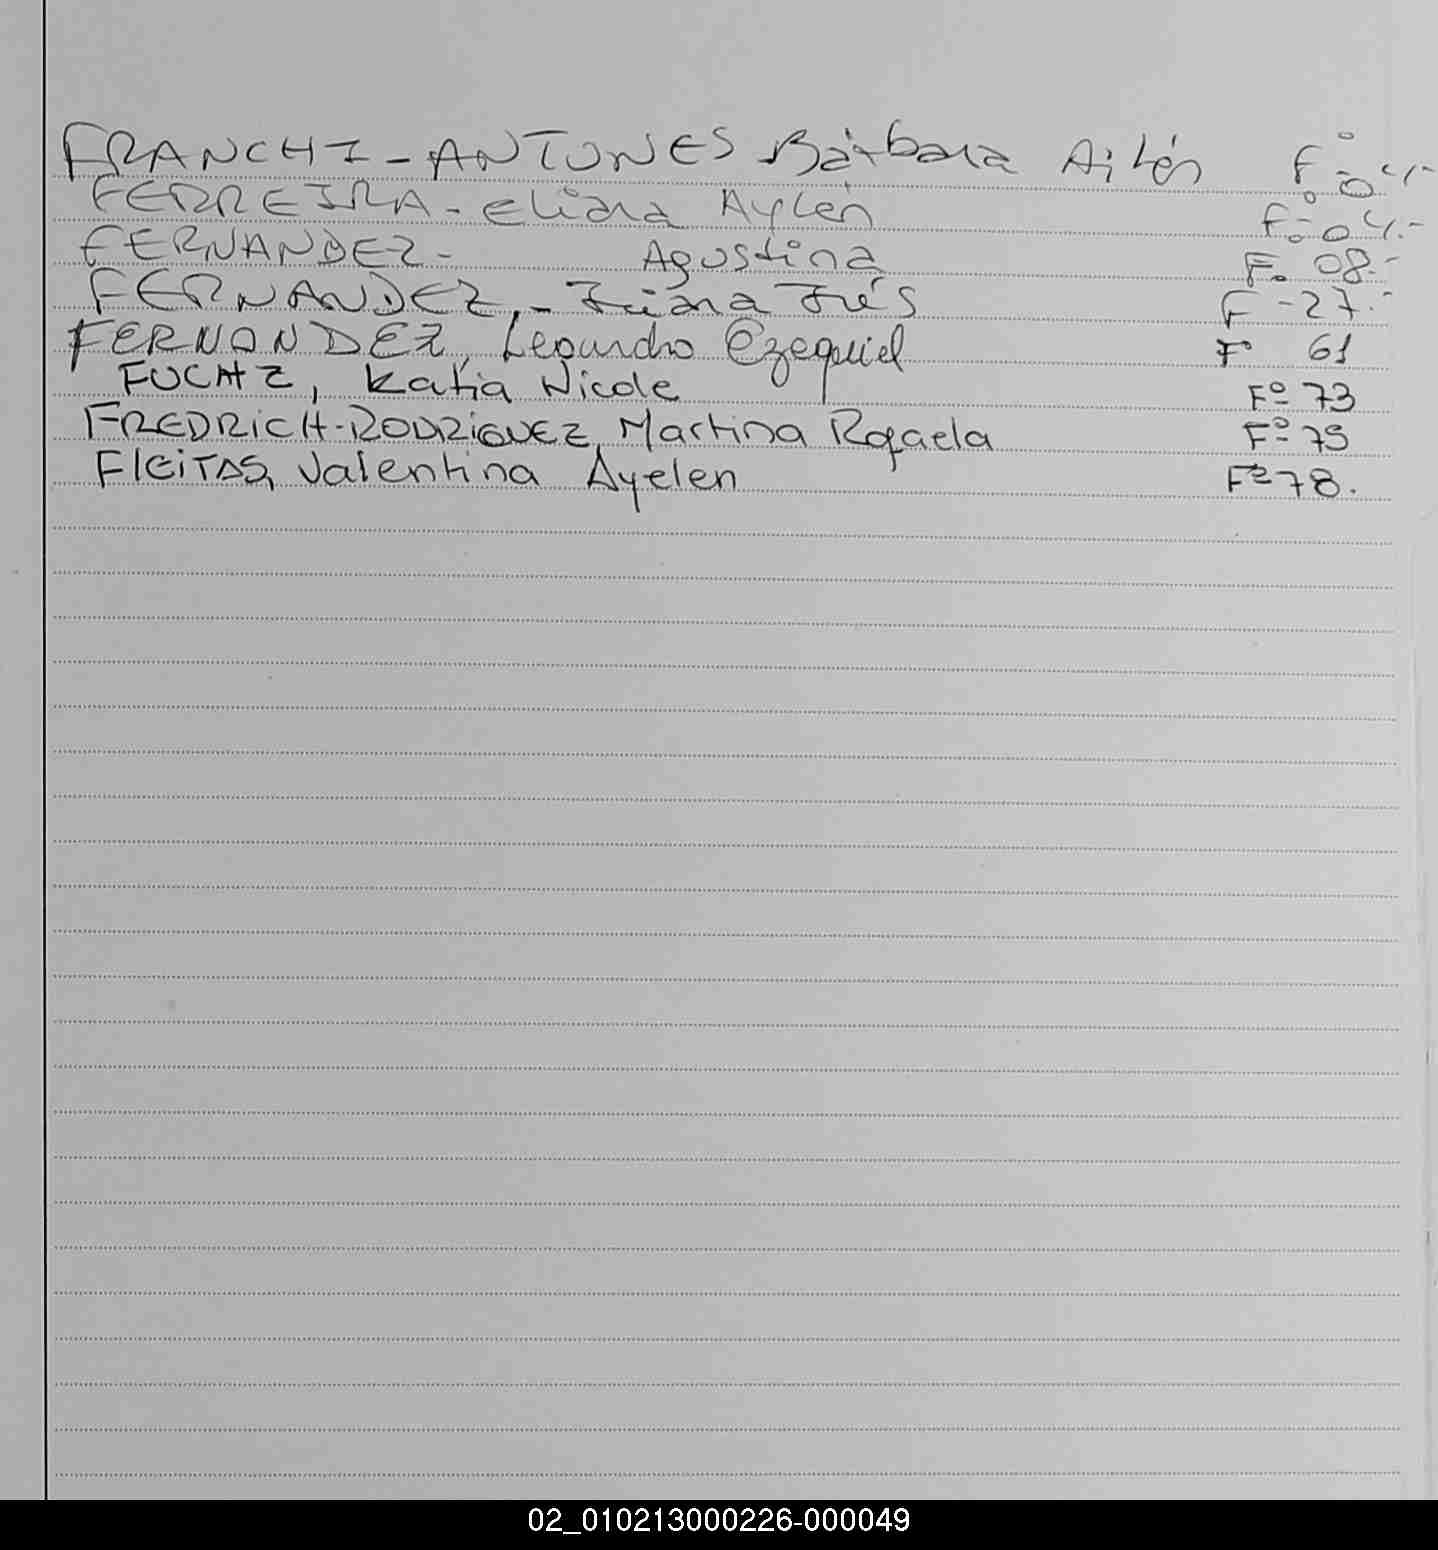 FRANCHI - ANTUNES Bárbara Ailén F.º 04.-
FERREIRA - Eliana Aylén F.º 04.-
FERNANDEZ - Agustina F. 08.-
FERNANDEZ, - Inés F - 27.-
FERNANDEZ, Leoandro Ezequiel Fº 61
FUCHZ, Katia Nicole Fº 73
FREDRICH-RODRIGUEZ, Martina Rafaela Fº 75
FLEITAS, Valentina Ayelen Fº 78.
02_010213000226-000049